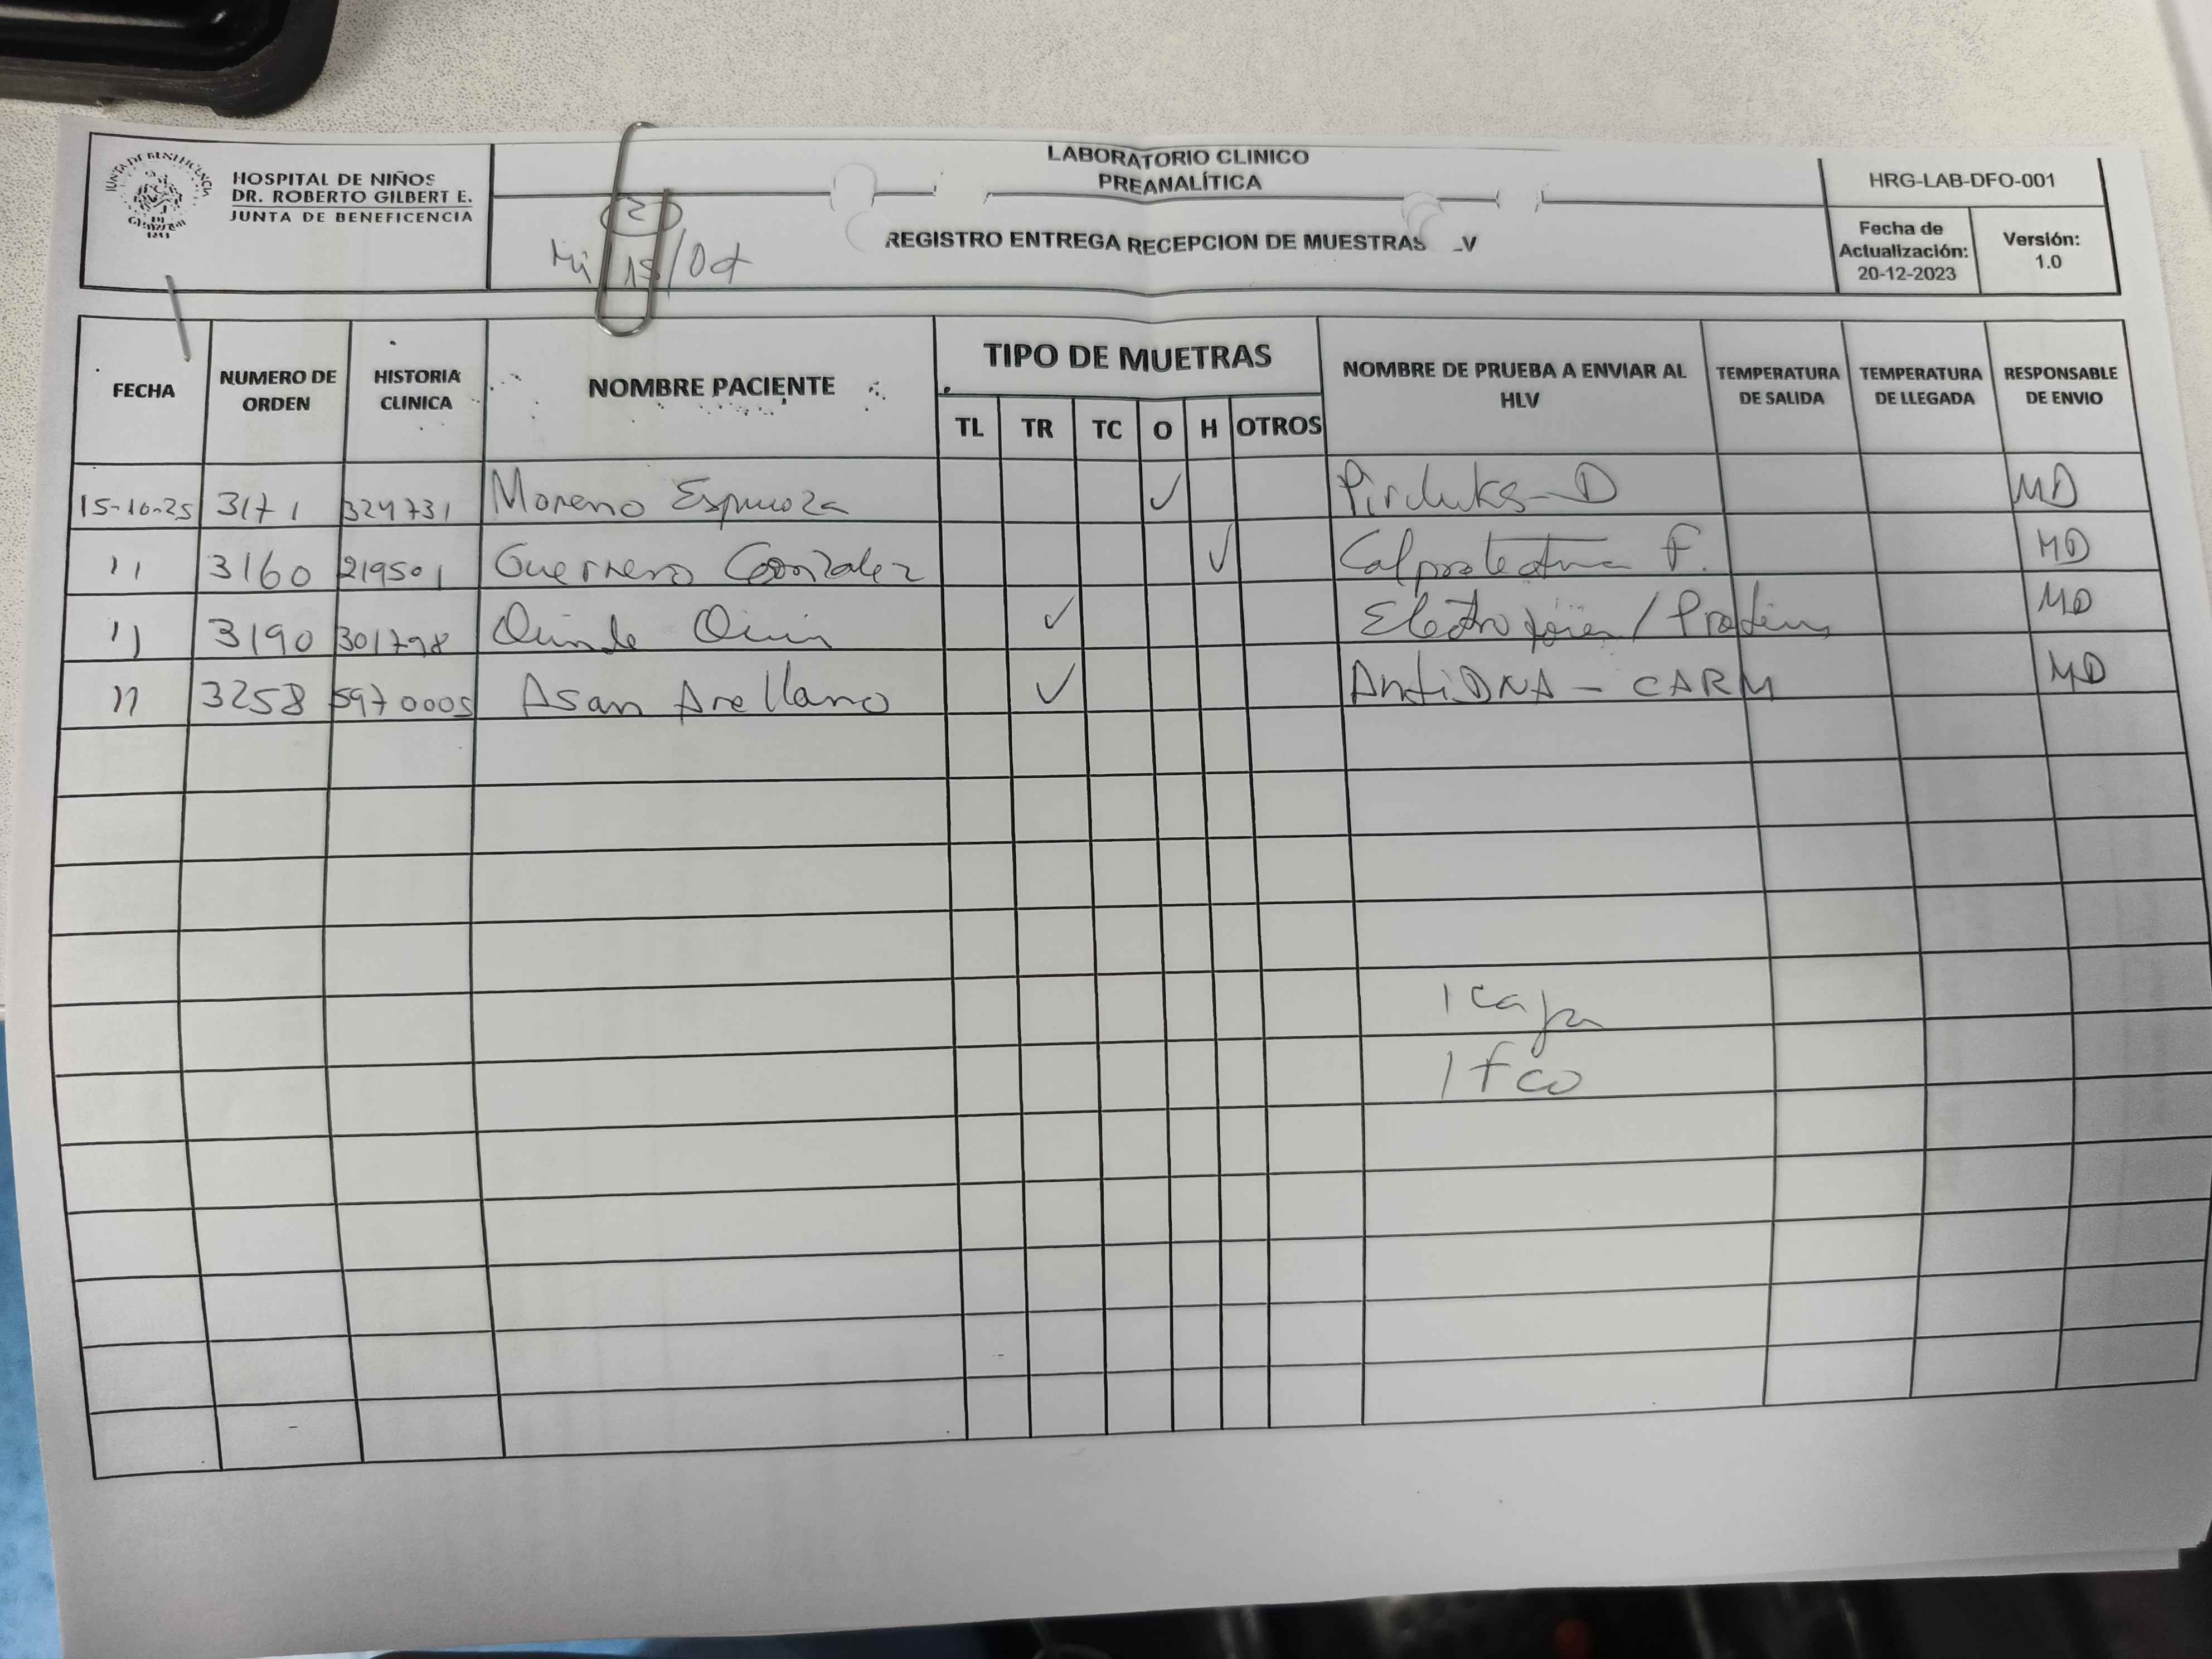 JUNTA DE BENEFICENCIA
HOSPITAL DE NIÑOS
DR. ROBERTO GILBERT E.
JUNTA DE BENEFICENCIA
LABORATORIO CLINICO
PREANALÍTICA
REGISTRO ENTREGA RECEPCION DE MUESTRAS LV
HRG-LAB-DFO-001
Fecha de Actualización: 20-12-2023
Versión: 1.0
2
Mi 15/Oct
FECHA NUMERO DE ORDEN HISTORIA CLINICA NOMBRE PACIENTE TIPO DE MUETRAS NOMBRE DE PRUEBA A ENVIAR AL HLV TEMPERATURA DE SALIDA TEMPERATURA DE LLEGADA RESPONSABLE DE ENVIO
TL TR TC O H OTROS
15-10-25 3171 324731 Moreno Espinoza ✓ MD
11 3160 219501 Guerrero Gonzalez ✓ Calprotectina F. MD
11 3190 301798 ✓ MD
11 3258 5970005 Asan Arellano ✓ AntiDNA - CARM MD
1 caja
1 fco